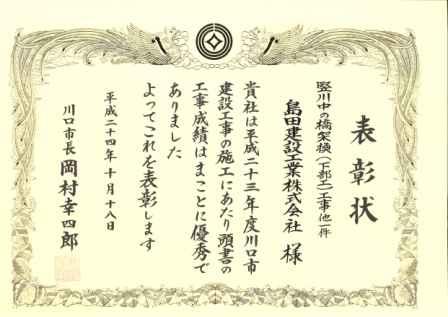 表彰状
竪川中の橋架換(下部工)工事他一件
島田建設工業株式会社 様
貴社は平成二十三年度川口市
建設工事の施工にあたり頭書の
工事成績はまことに優秀で
ありました
よってこれを表彰します
平成二十四年十月十八日
川口市長 岡村幸四郎